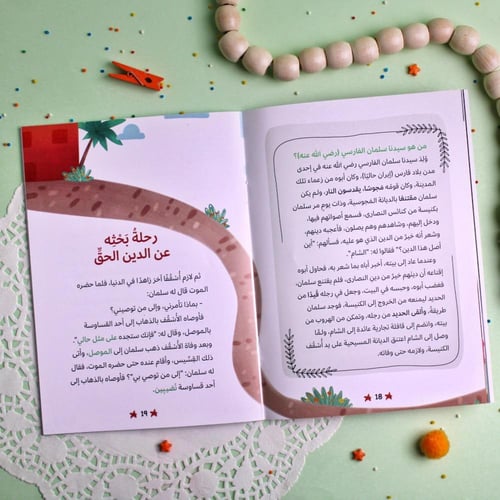 من هو سيدنا سلمان الفارسي (رضي الله عنه)؟
وُلِدَ سيدنا سلمان الفارسي رضي الله عنه في إحدى
مدن بلاد فارس (إيران حاليًا)، وكان أبوه من زعماء تلك
المدينة، وكان قومُه مَجوسًا، يقدسون النار، ولم يكن
سلمان مقتنعًا بالديانة المَجوسية، وذات يوم مر سلمان
بكنيسة من كنائس النصارى، فسمع أصواتهم فيها،
ودخل إليهم، وشاهدهم وهم يصلون، فأعجبه دينهم،
وشعر أنه خيرٌ من الدين الذي هو عليه، فسألهم: "أين
أصل هذا الدين؟" فقالوا له: "الشام".
وعندما عاد إلى بيته، أخبر أباه بما شعر به، فحاول أبوه
إقناعه أن دينهم خيرٌ من دين النصارى، فلم يقتنع سلمان،
فغضب أبوه، وحبسه في البيت، وجعل في رجله قيدًا من
الحديد ليمنعه من الخروج إلى الكنيسة، فوجد سلمان
طريقةً، وألقى الحديد من رجله، وتمكن من الهروب من
بيته، وانضم إلى قافلة تجارية عائدة إلى الشام، ولمَّا
وصل إلى الشام اعتنق الديانة المسيحية على يد أُسْقُف
الكنيسة، ولازمه حتى وفاته.
18
رحلةُ بَحْثِه
عن الدين الحقِّ
ثم لازم أُسْقُفًا آخرَ زاهدًا في الدنيا، فلما حضره
الموت قال له سلمان:
- بماذا تأمرني، وإلى من توصيني؟
فأوصاه الأسْقُف بالذهاب إلى أحد القساوسة
بالموصل، وقال له: "فإنك ستجده على مثل حالي".
وبعد وفاة الأُسْقُف ذهب سلمان إلى الموصل، وأتى
ذلك القِسِّيس، وأقام عنده حتى حضره الموت، فقال
له سلمان: "إلى من توصي بي"؟ فأوصاه بالذهاب إلى
أحد قساوسة نُصيبين.
١٩